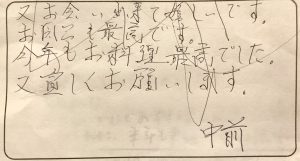 又お会い出来て嬉しいです。
お風呂も最高です。
今年もお料理最高でした。
又宜しくお願いします。
中前